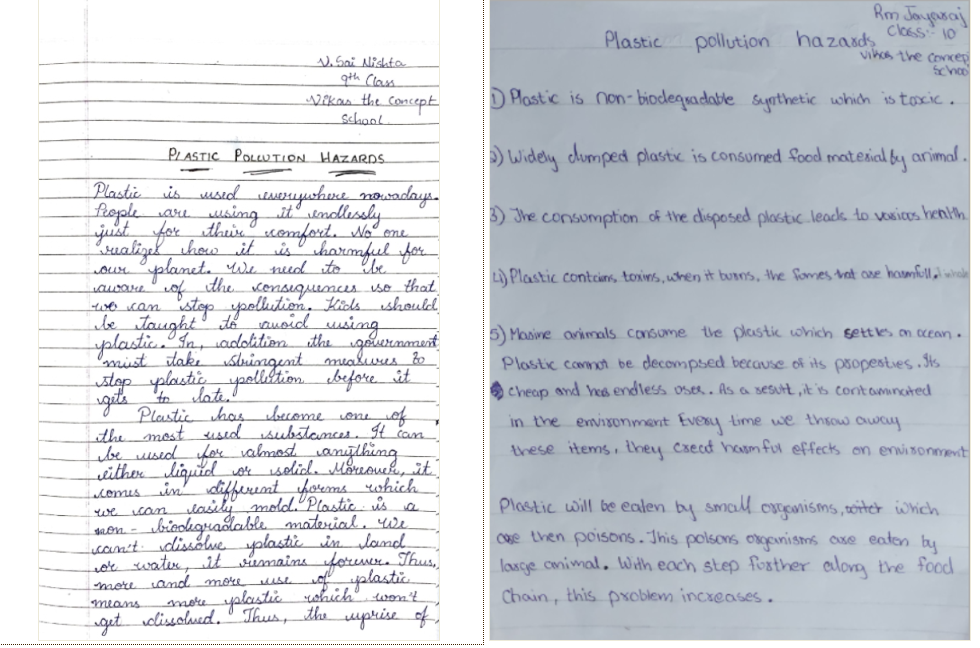 V. Sai Nishta
9th Class
Vikas the Concept
School.
PLASTIC POLLUTION HAZARDS
Plastic is used everywhere nowadays.
People are using it endlessly
just for their comfort. No one
realizes how it is harmful for
our planet. We need to be
aware of the consequences so that
we can stop pollution. Kids should
be taught to avoid using
plastic. In, addition the government
must take stringent measures to
stop plastic pollution before it
gets to late.
Plastic has become one of
the most used substances. It can
be used for almost anything
either liquid or solid. Moreover, it
comes in different forms which
we can easily mold. Plastic is a
non-biodegradable material. We
can't dissolve plastic in land
or water, it remains forever. Thus,
more and more use of plastic
means more plastic which won't
get dissolved. Thus, the uprise of
Rm Jayaraj
Class:- 10
Plastic pollution hazards
vikas the concep
School
1) Plastic is non-biodegradable synthetic which is toxic.
2) Widely dumped plastic is consumed food material by animal.
3) The consumption of the disposed plastic leads to various health
4) Plastic contains toxins, when it burns, the fomes that are harmfull.
5) Marine animals consume the plastic which settles on ocean.
Plastic cannot be decompsed because of its properties. Its
cheap and has endless uses. As a result, it is contaminated
in the environment Every time we throw away
these items, they harmful effects on environment
Plastic will be eaten by small organisms, which
are then poisons. This poisons organisms are eaten by
large animal. With each step further along the food
chain, this problem increases.